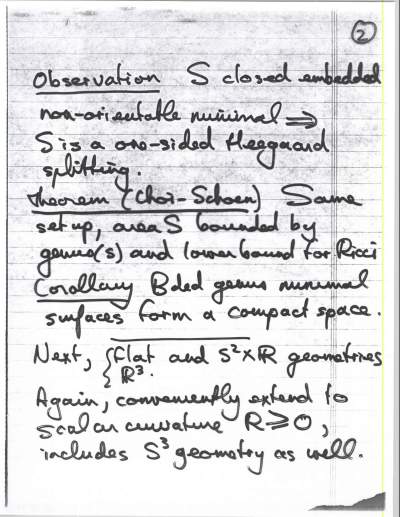 ②
Observation S closed embedded
non-orientable minimal ⟹
S is a one-sided Heegaard
splitting.
Theorem (Choi-Schoen) Same
set up, area S bounded by
genus(S) and lower bound for Ricci
Corollary Bded genus minimal
surfaces form a compact space.
Next, { Flat and S²×ℝ geometries
ℝ³.
Again, conveniently extend to
scalar curvature R ⩾ 0,
includes S³ geometry as well.